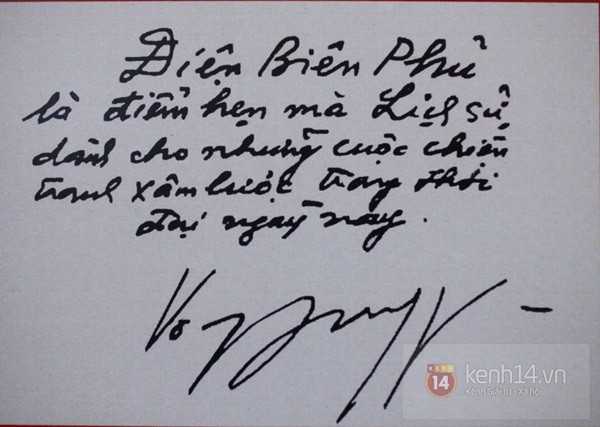 Điện Biên Phủ
là điểm hẹn mà Lịch sử
dành cho những cuộc chiến
tranh xâm lược trong thời
đại ngày nay.
Võ
kenh14.vn
Kênh Giải trí - Xã hội
KENH
14